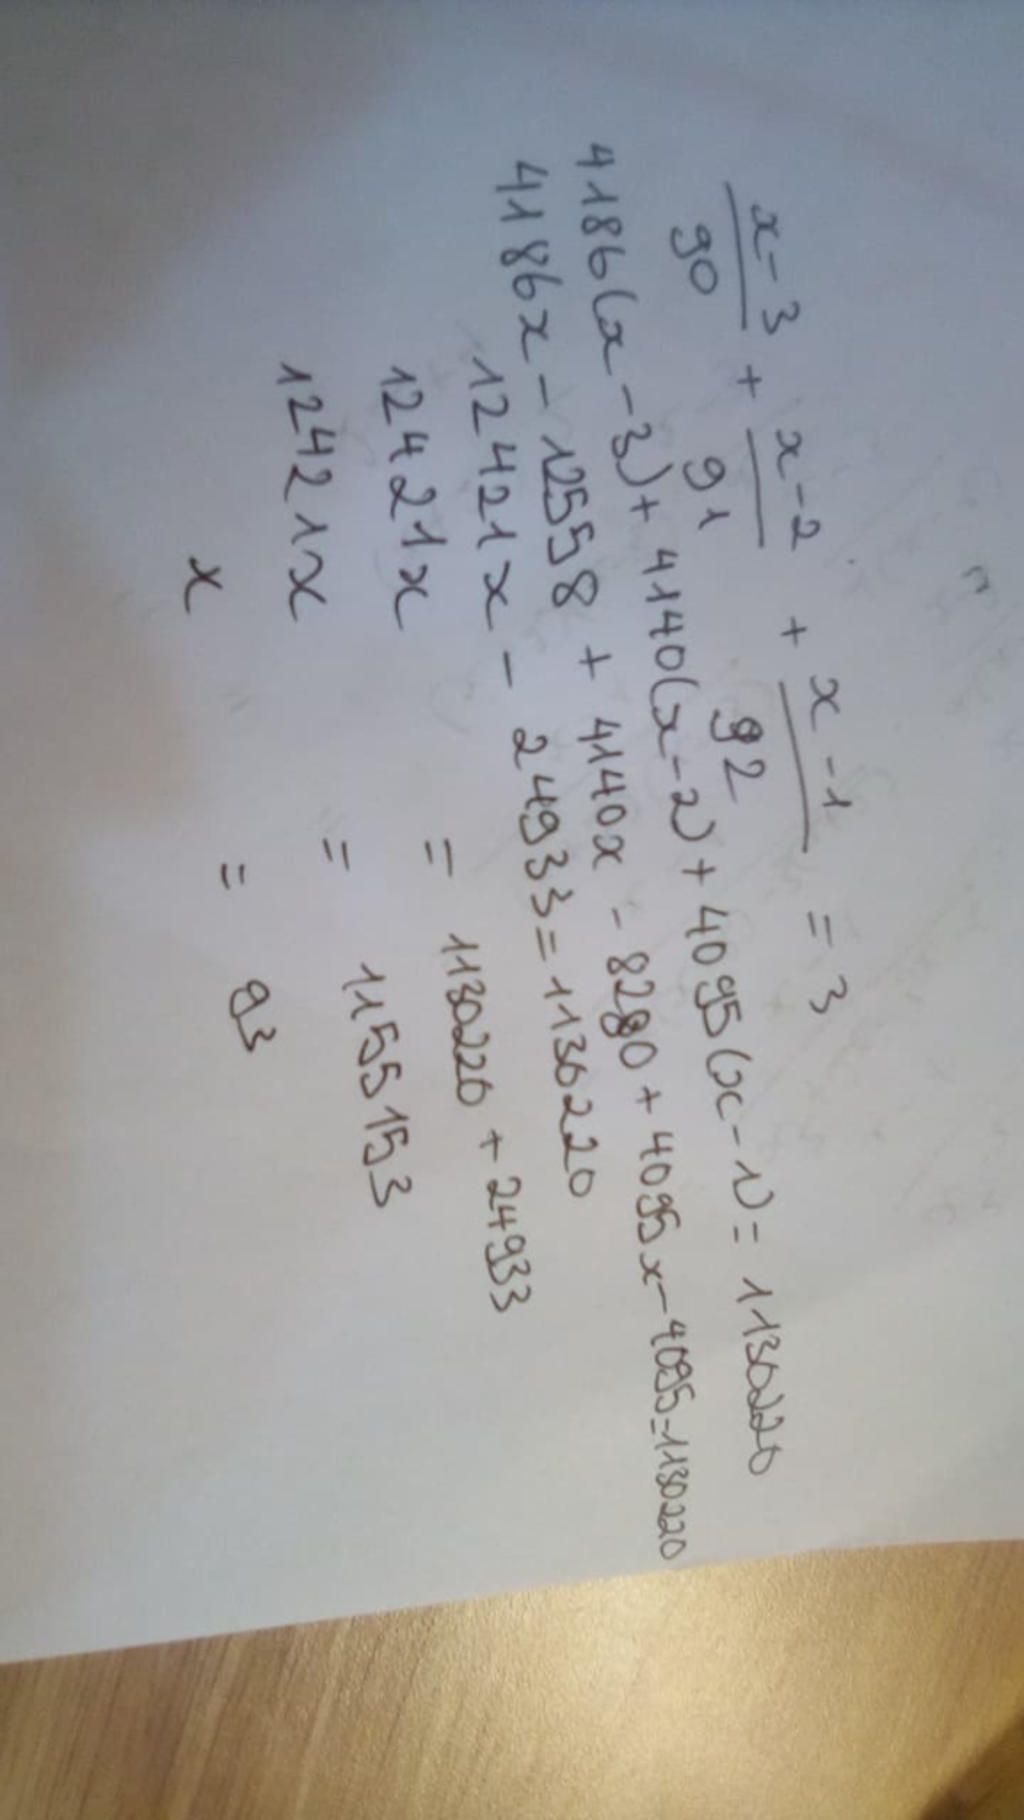 x-3/90 + x-2/91 + x-1/92 = 3
4186(x-3) + 4140(x-2) + 4095(x-1) = 1130220
4186x - 12558 + 4140x - 8280 + 4095x - 4095 = 1130220
12421x - 24933 = 1130220
12421x = 1130220 + 24933
12421x = 1155153
x = 93